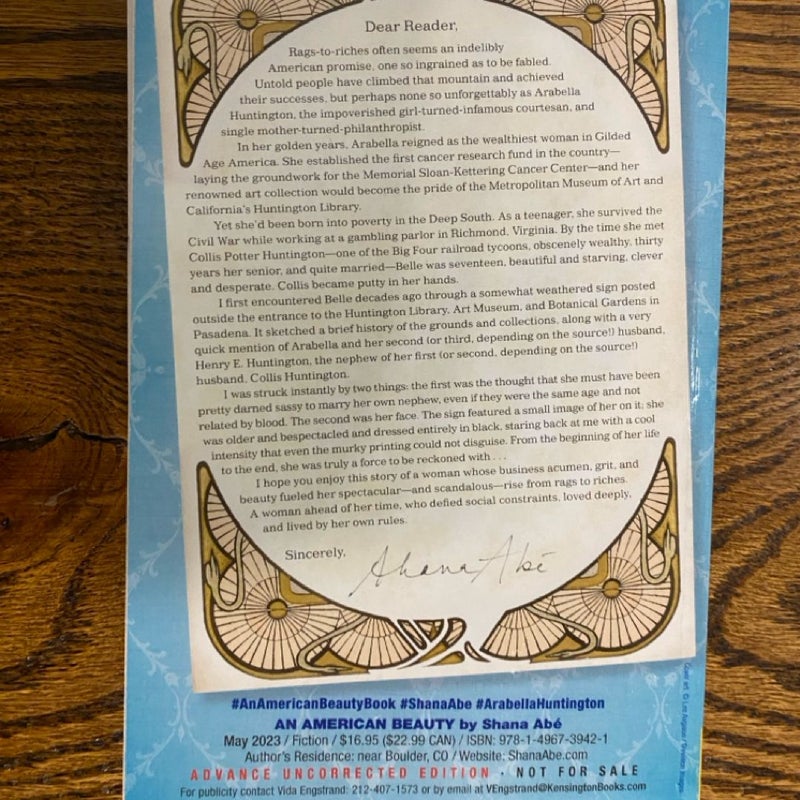 Dear Reader,
Rags-to-riches often seems an indelibly
American promise, one so ingrained as to be fabled.
Untold people have climbed that mountain and achieved
their successes, but perhaps none so unforgettably as Arabella
Huntington, the impoverished girl-turned-infamous courtesan, and
single mother-turned-philanthropist.
In her golden years, Arabella reigned as the wealthiest woman in Gilded
Age America. She established the first cancer research fund in the country—
laying the groundwork for the Memorial Sloan-Kettering Cancer Center—and her
renowned art collection would become the pride of the Metropolitan Museum of Art and
California's Huntington Library.
Yet she'd been born into poverty in the Deep South. As a teenager, she survived the
Civil War while working at a gambling parlor in Richmond, Virginia. By the time she met
Collis Potter Huntington—one of the Big Four railroad tycoons, obscenely wealthy, thirty
years her senior, and quite married—Belle was seventeen, beautiful and starving, clever
and desperate. Collis became putty in her hands.
I first encountered Belle decades ago through a somewhat weathered sign posted
outside the entrance to the Huntington Library, Art Museum, and Botanical Gardens in
Pasadena. It sketched a brief history of the grounds and collections, along with a very
quick mention of Arabella and her second (or third, depending on the source!) husband,
Henry E. Huntington, the nephew of her first (or second, depending on the source!)
husband, Collis Huntington.
I was struck instantly by two things: the first was the thought that she must have been
pretty darned sassy to marry her own nephew, even if they were the same age and not
related by blood. The second was her face. The sign featured a small image of her on it; she
was older and bespectacled and dressed entirely in black, staring back at me with a cool
intensity that even the murky printing could not disguise. From the beginning of her life
to the end, she was truly a force to be reckoned with . . .
I hope you enjoy this story of a woman whose business acumen, grit, and
beauty fueled her spectacular—and scandalous—rise from rags to riches.
A woman ahead of her time, who defied social constraints, loved deeply,
and lived by her own rules.
Sincerely,
Shana Abé
#AnAmericanBeautyBook #ShanaAbe #ArabellaHuntington
AN AMERICAN BEAUTY by Shana Abé
May 2023 / Fiction / $16.95 ($22.99 CAN) / ISBN: 978-1-4967-3942-1
Author's Residence: near Boulder, CO / Website: ShanaAbe.com
ADVANCE UNCORRECTED EDITION • NOT FOR SALE
For publicity contact Vida Engstrand: 212-407-1573 or by email at VEngstrand@KensingtonBooks.com